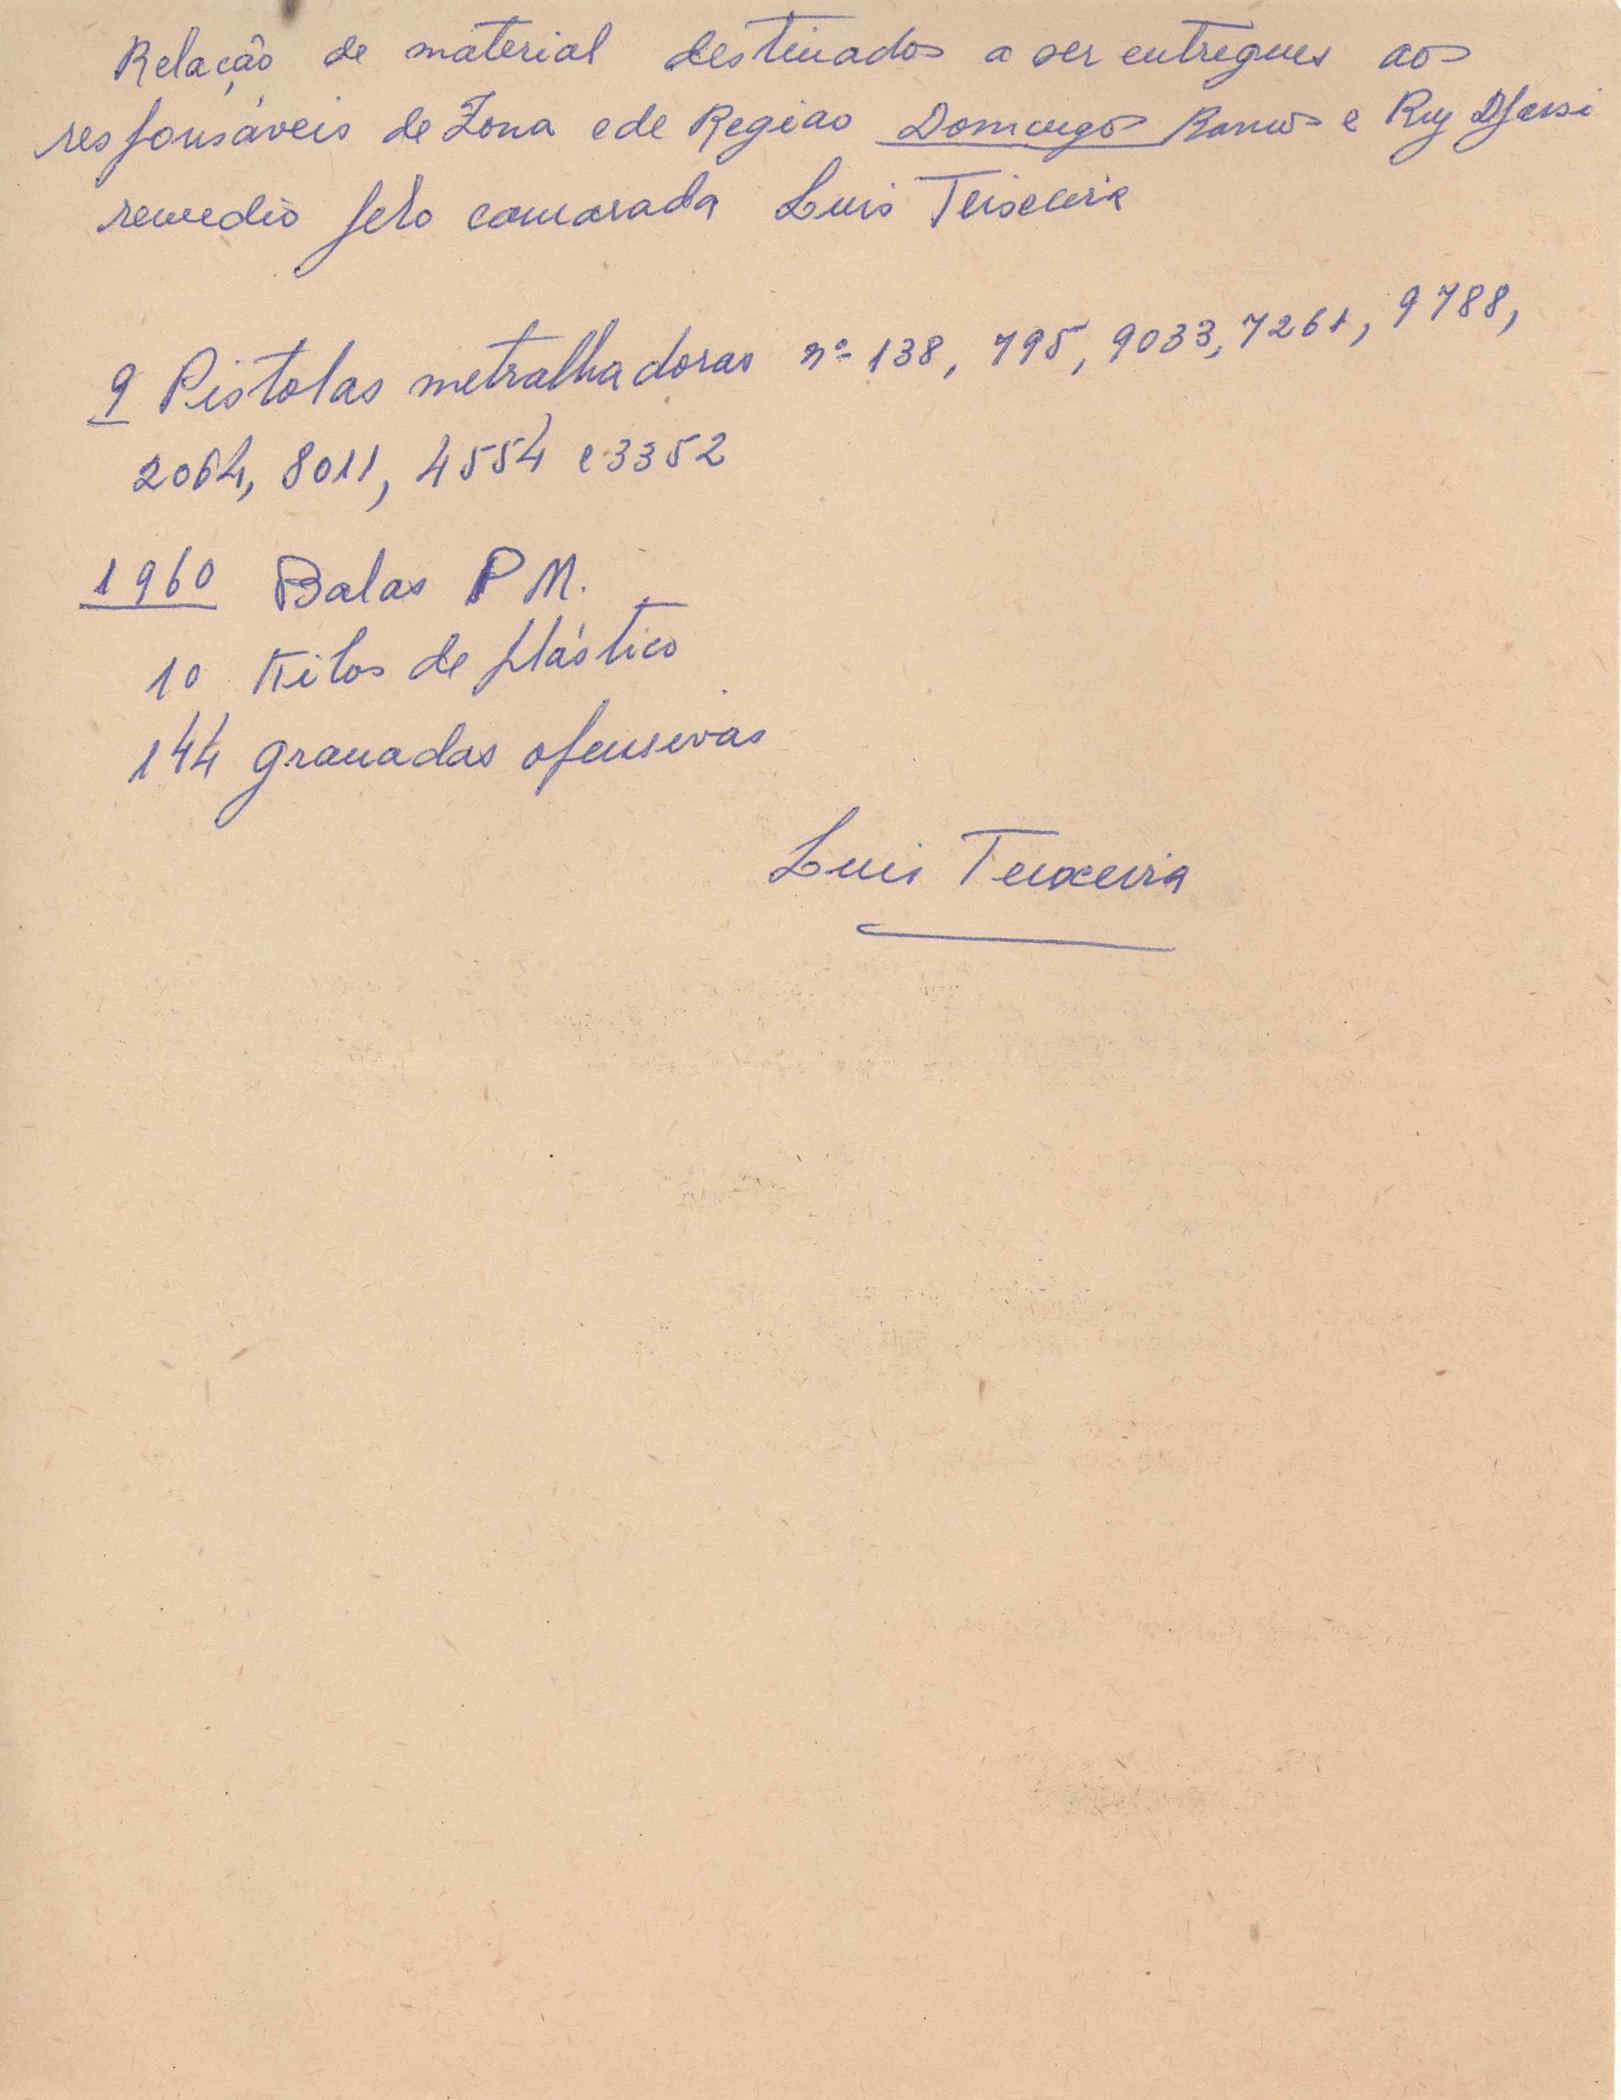 Relação de material destinados a ser entregues aos
responsáveis de Zona e de Regiao Domingos Ramos e Ruy Djassi
remedio pelo camarada Luis Teixeira
9 Pistolas metralhadoras nº 138, 795, 9033, 7261, 9788,
2064, 8011, 4554 e 3352
1960 Balas P M.
10 Kilos de plástico
144 granadas ofensivas
Luis Teixeira